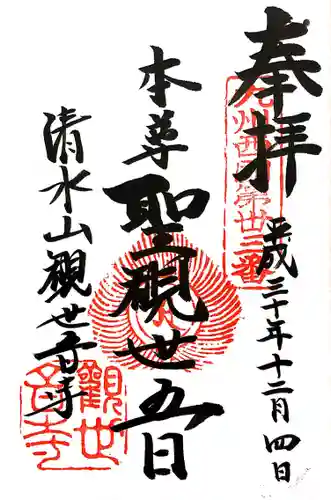 奉拝
九州西国第廿三番
平成三十年十二月四日
本尊
聖観世五日
清水山観世音寺
観世音寺